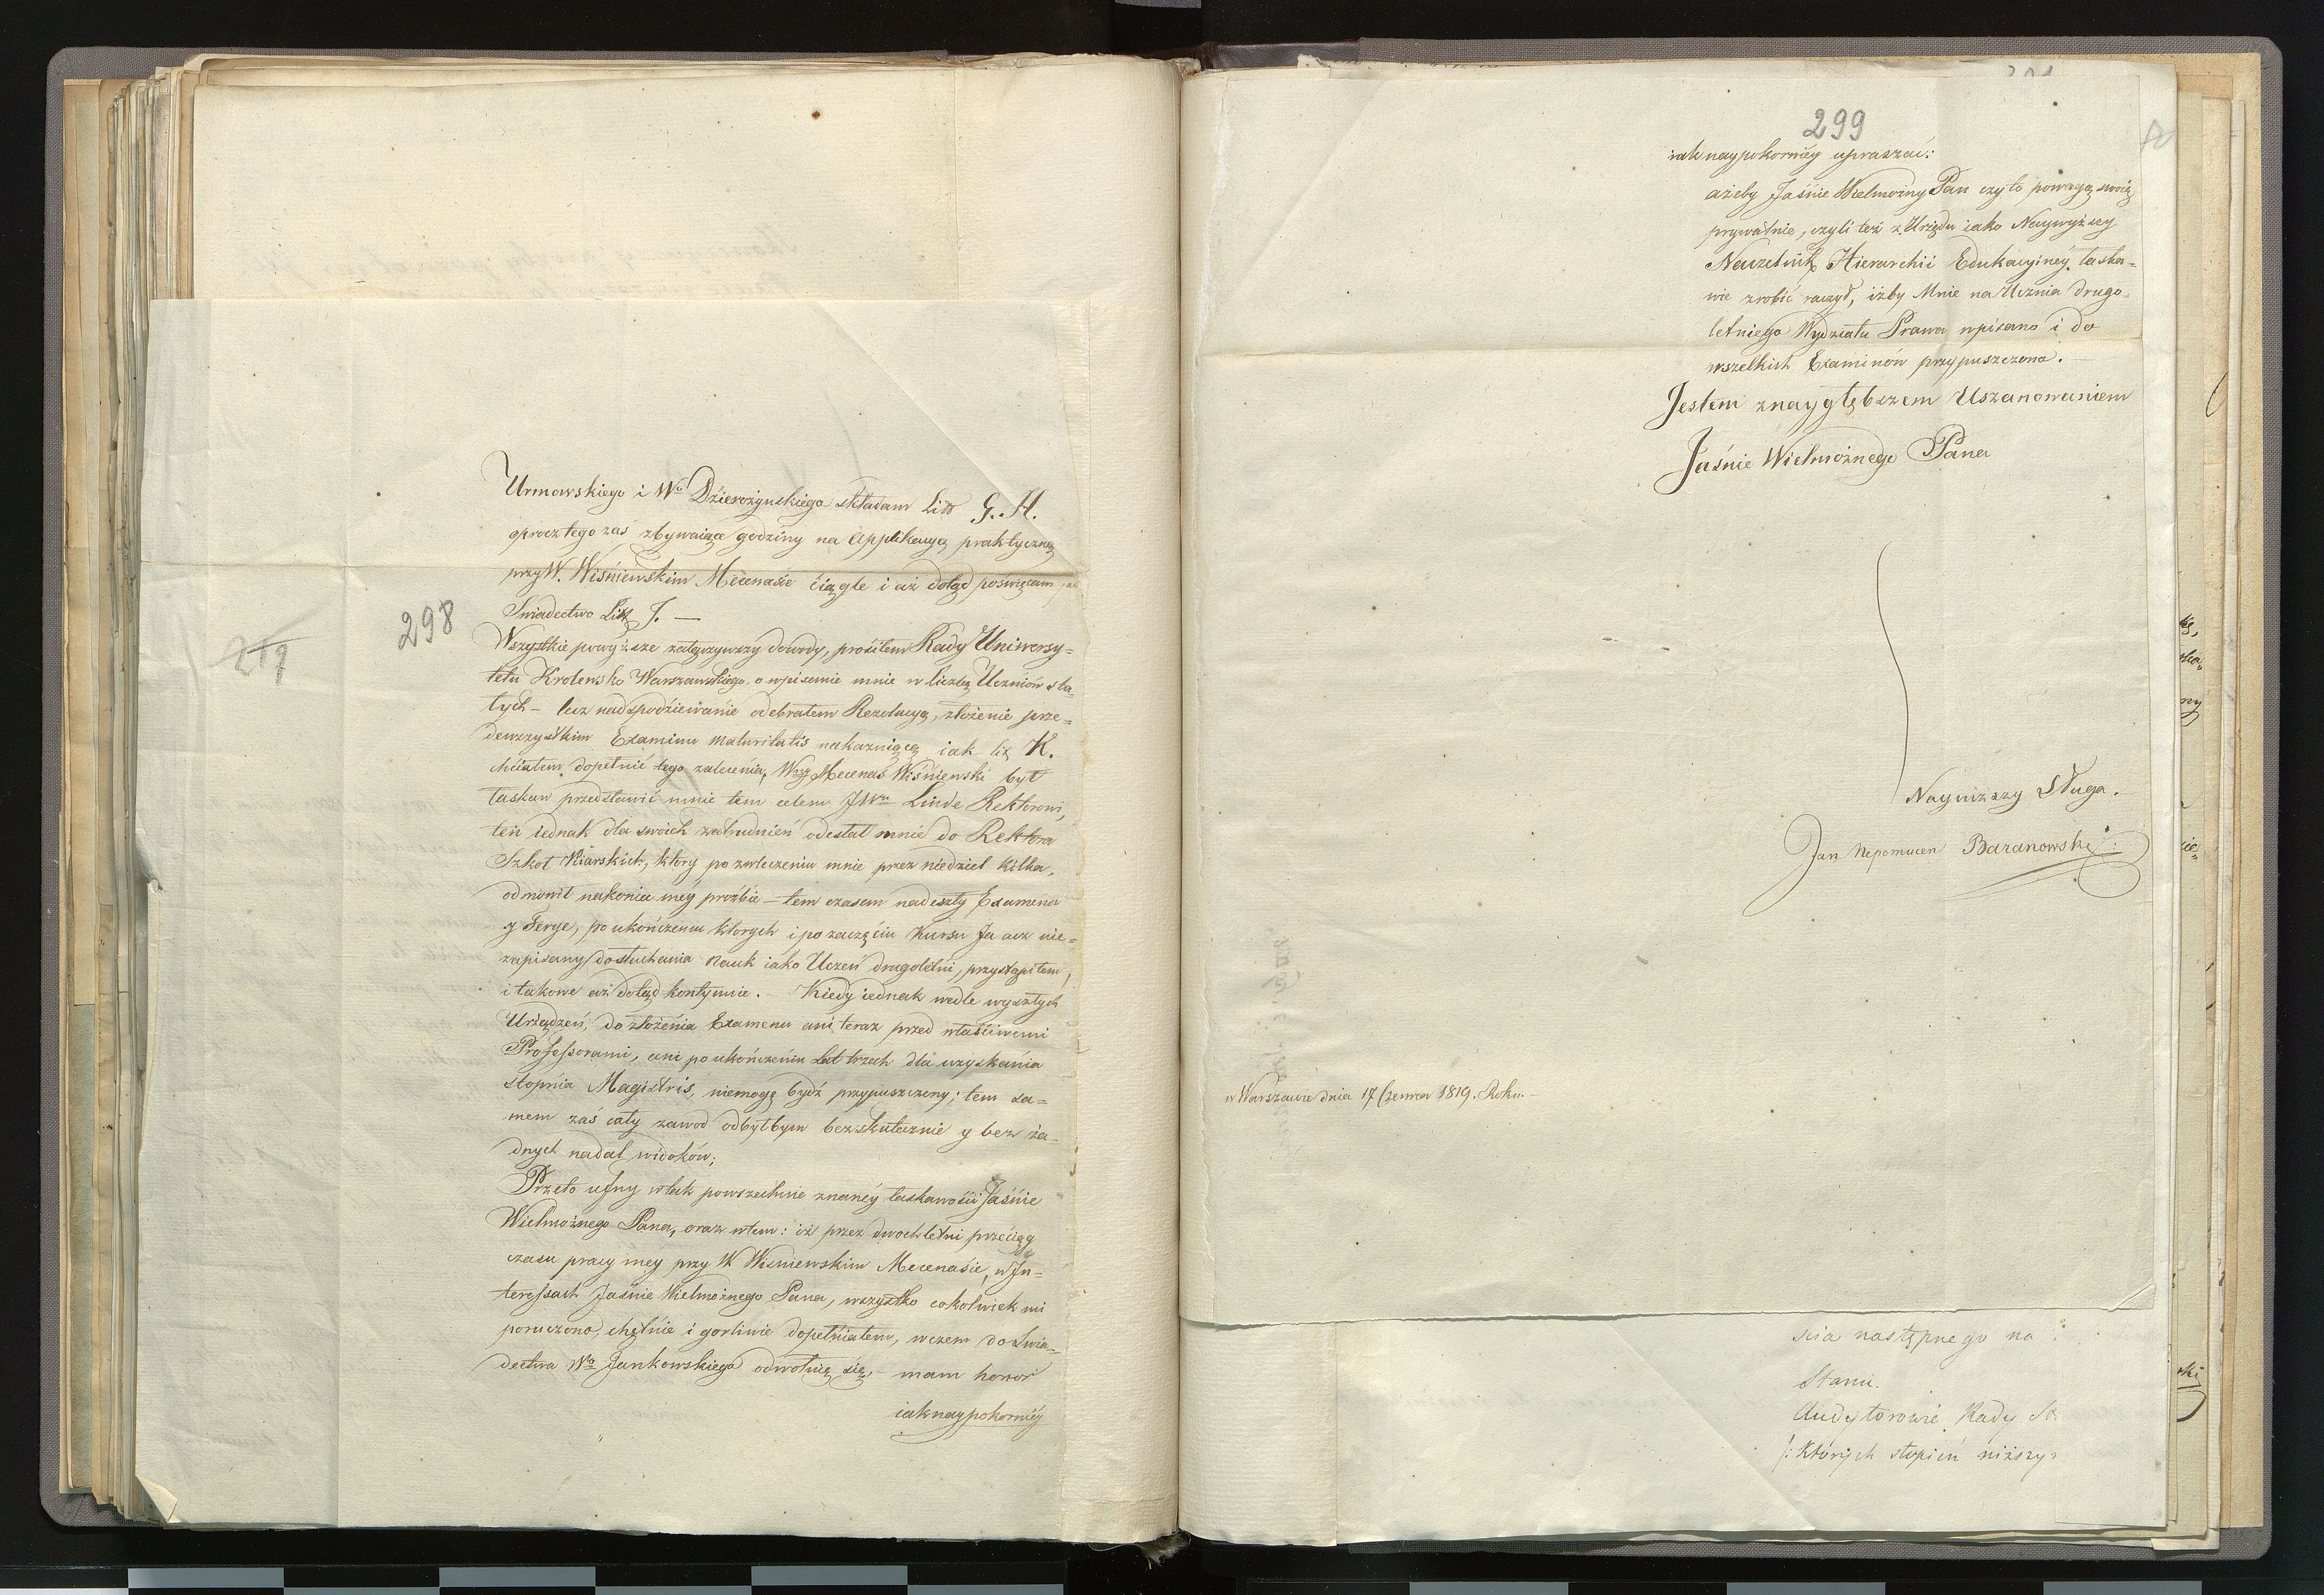 298
217
Urmowskiego i Wo Dzierożynskiego składam Litt G. H.
oprocz tego zaś zbywaiące godziny na Applikacyą praktyczną
przy W. Wiśniewskim Mecenasie ciągle i aż dotąd poswięcam
Swiadectwo Litt J. —
Wszystkie powyższe załączywszy dowody, prosiłem Rady Uniwersy=
tetu Krolewsko Warszawskiego o wpisanie mnie w liczbę Uczniów sta=
łych – lecz nadspodziewanie odebrałem Rezolucyą, złożenie prze=
dewszystkim Examinu maturitatis nakazuiącą iak lit K.
chciałem dopełnić tego zalecenia, Wszy Mecenas Wiśniewski był
łaskaw przedstawić mnie tem celem JWu Linde Rektorowi,
ten iednak dla swoich zatrudnień odesłał mnie do Rektora
Szkoł Piiarskich, ktory po zwleczeniu mnie przez niedziel kilka,
odmowił nakoniec mey proźbie – tem czasem nadeszły Examena
y Ferye, po ukończeniu ktorych i po zaczęciu Kursu Ja acz nie=
zapisany, do słuchania Nauk iako Uczeń drugoletni, przystąpiłem,
i takowe aż dotąd kontynuie. – Kiedy iednak wedle wyszłych
Urządzeń, do złożenia Examenu ani teraz przed właściwemi
Professorami, ani po ukończeniu Lat trzech dla uzyskania
stopnia Magistris, niemogę bydź przypuszczony; tem sa=
mem zaś cały zawod odbyłbym bezskutecznie y bez ża=
dnych nadal widoków;
Przeto ufny w tak powszechnie znanéy łaskawości Jaśnie
Wielmożnego Pana, oraz w tem: iż przez dwochletni przeciąg
czasu pracy mey przy W Wisniewskim Mecenasie, w In=
teressach Jaśnie Wielmożnego Pana, wszystko cokolwiek mi
poruczono, chętnie i gorliwie dopełniałem, w czem do Swia=
dectwa Wo Jankowskiego odwołuię się, – mam honor
iaknaypokorniéy
299
iaknaypokorniéy upraszać:
ażeby Jaśnie Wielmożny Pan czyto powagą swoią
prywatnie, czyli też z Urzędu iako Naywyższy
Naczelnik Hierarchii Edukacyiney łaska=
wie zrobić raczył, iżby Mnie na Ucznia drugo=
letniego Wydziału Prawa wpisano i do
wszelkich Examinów przypuszczono. —
Jestem z nayglębszem Uszanowaniem
Jaśnie Wielmożnego Pana
Nayniższy Sługa.
Jan Nepomucen Baranowski
w Warszawie dnia 17 Czerwca 1819. Roku. –
scia następnego na
Stanu.
Audytorowie Rady
/: Których stopień niższy